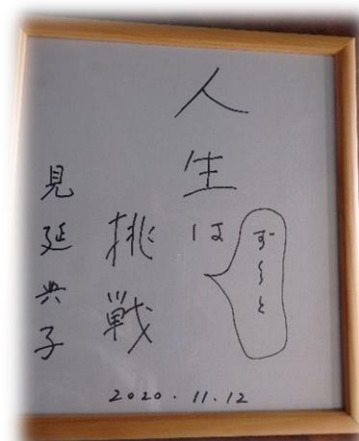 人生は
ず〜っと
挑戦
見延典子
2020.11.12